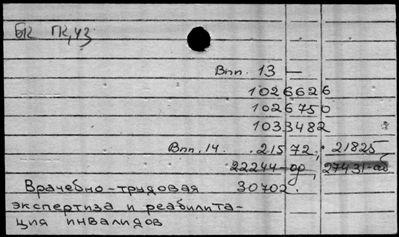 БК ПК, УЗ
Вып. 13 —
1026626
1026750
1033482
Вып. 14. 21572, 21825
22244-од, 27431-аб
Врачебно-трудовая 30702.
экспертиза и реабилита-
ция инвалидов